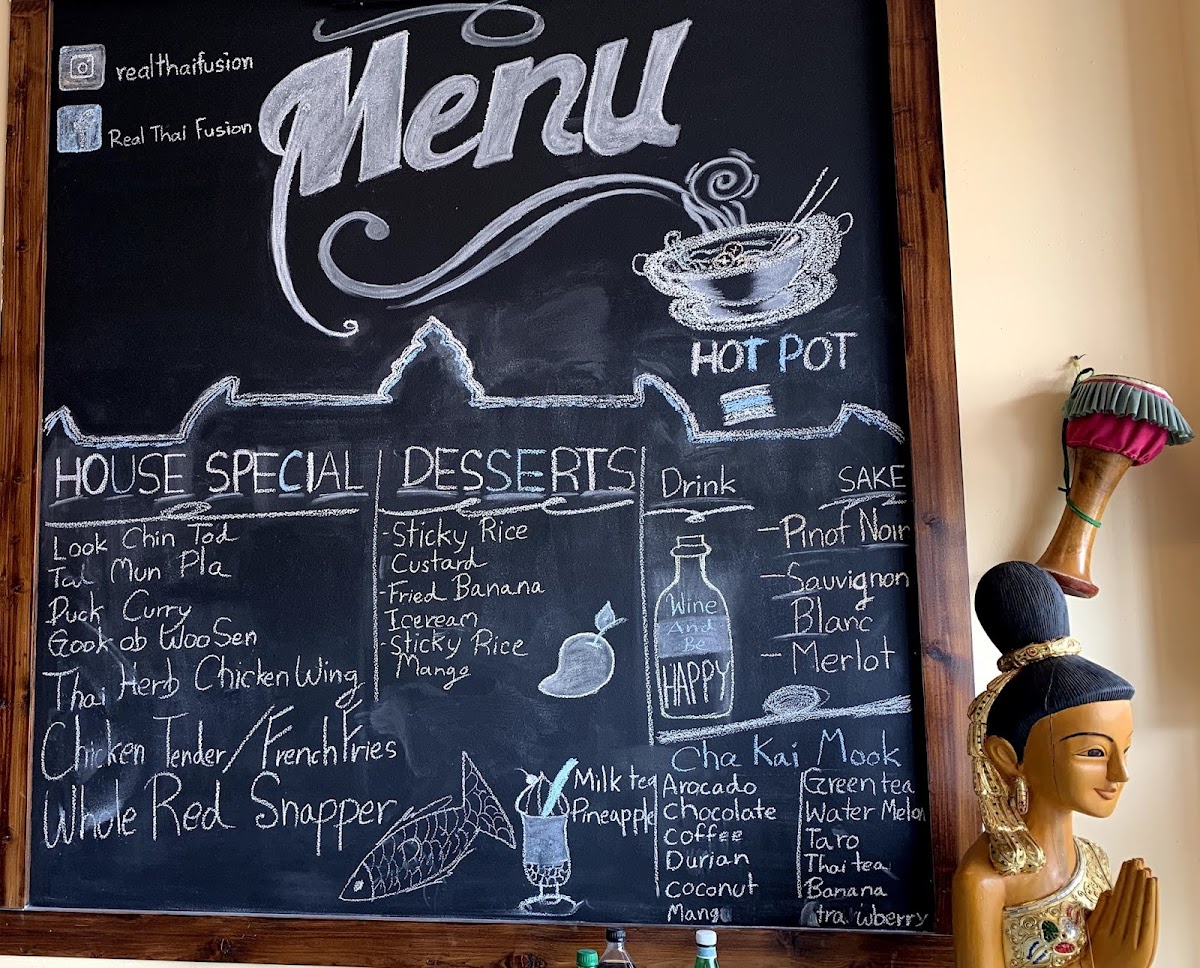 realthaifusion
Real Thai Fusion
Menu
HOT POT
HOUSE SPECIAL
Look Chin Tod
Tod Mun Pla
Duck Curry
Gook ob Woo Sen
Thai Herb Chicken Wing
Chicken Tender/French Fries
Whole Red Snapper
DESSERTS
-Sticky Rice
Custard
-Fried Banana
Icecream
-Sticky Rice
Mango
Drink
Wine
And
Be
HAPPY
SAKE
-Pinot Noir
-Sauvignon
Blanc
-Merlot
Cha Kai Mook
Milk tea
Pineapple
Avocado
Chocolate
Coffee
Durian
coconut
Mango
Green tea
Water Melon
Taro
Thai tea
Banana
trawberry